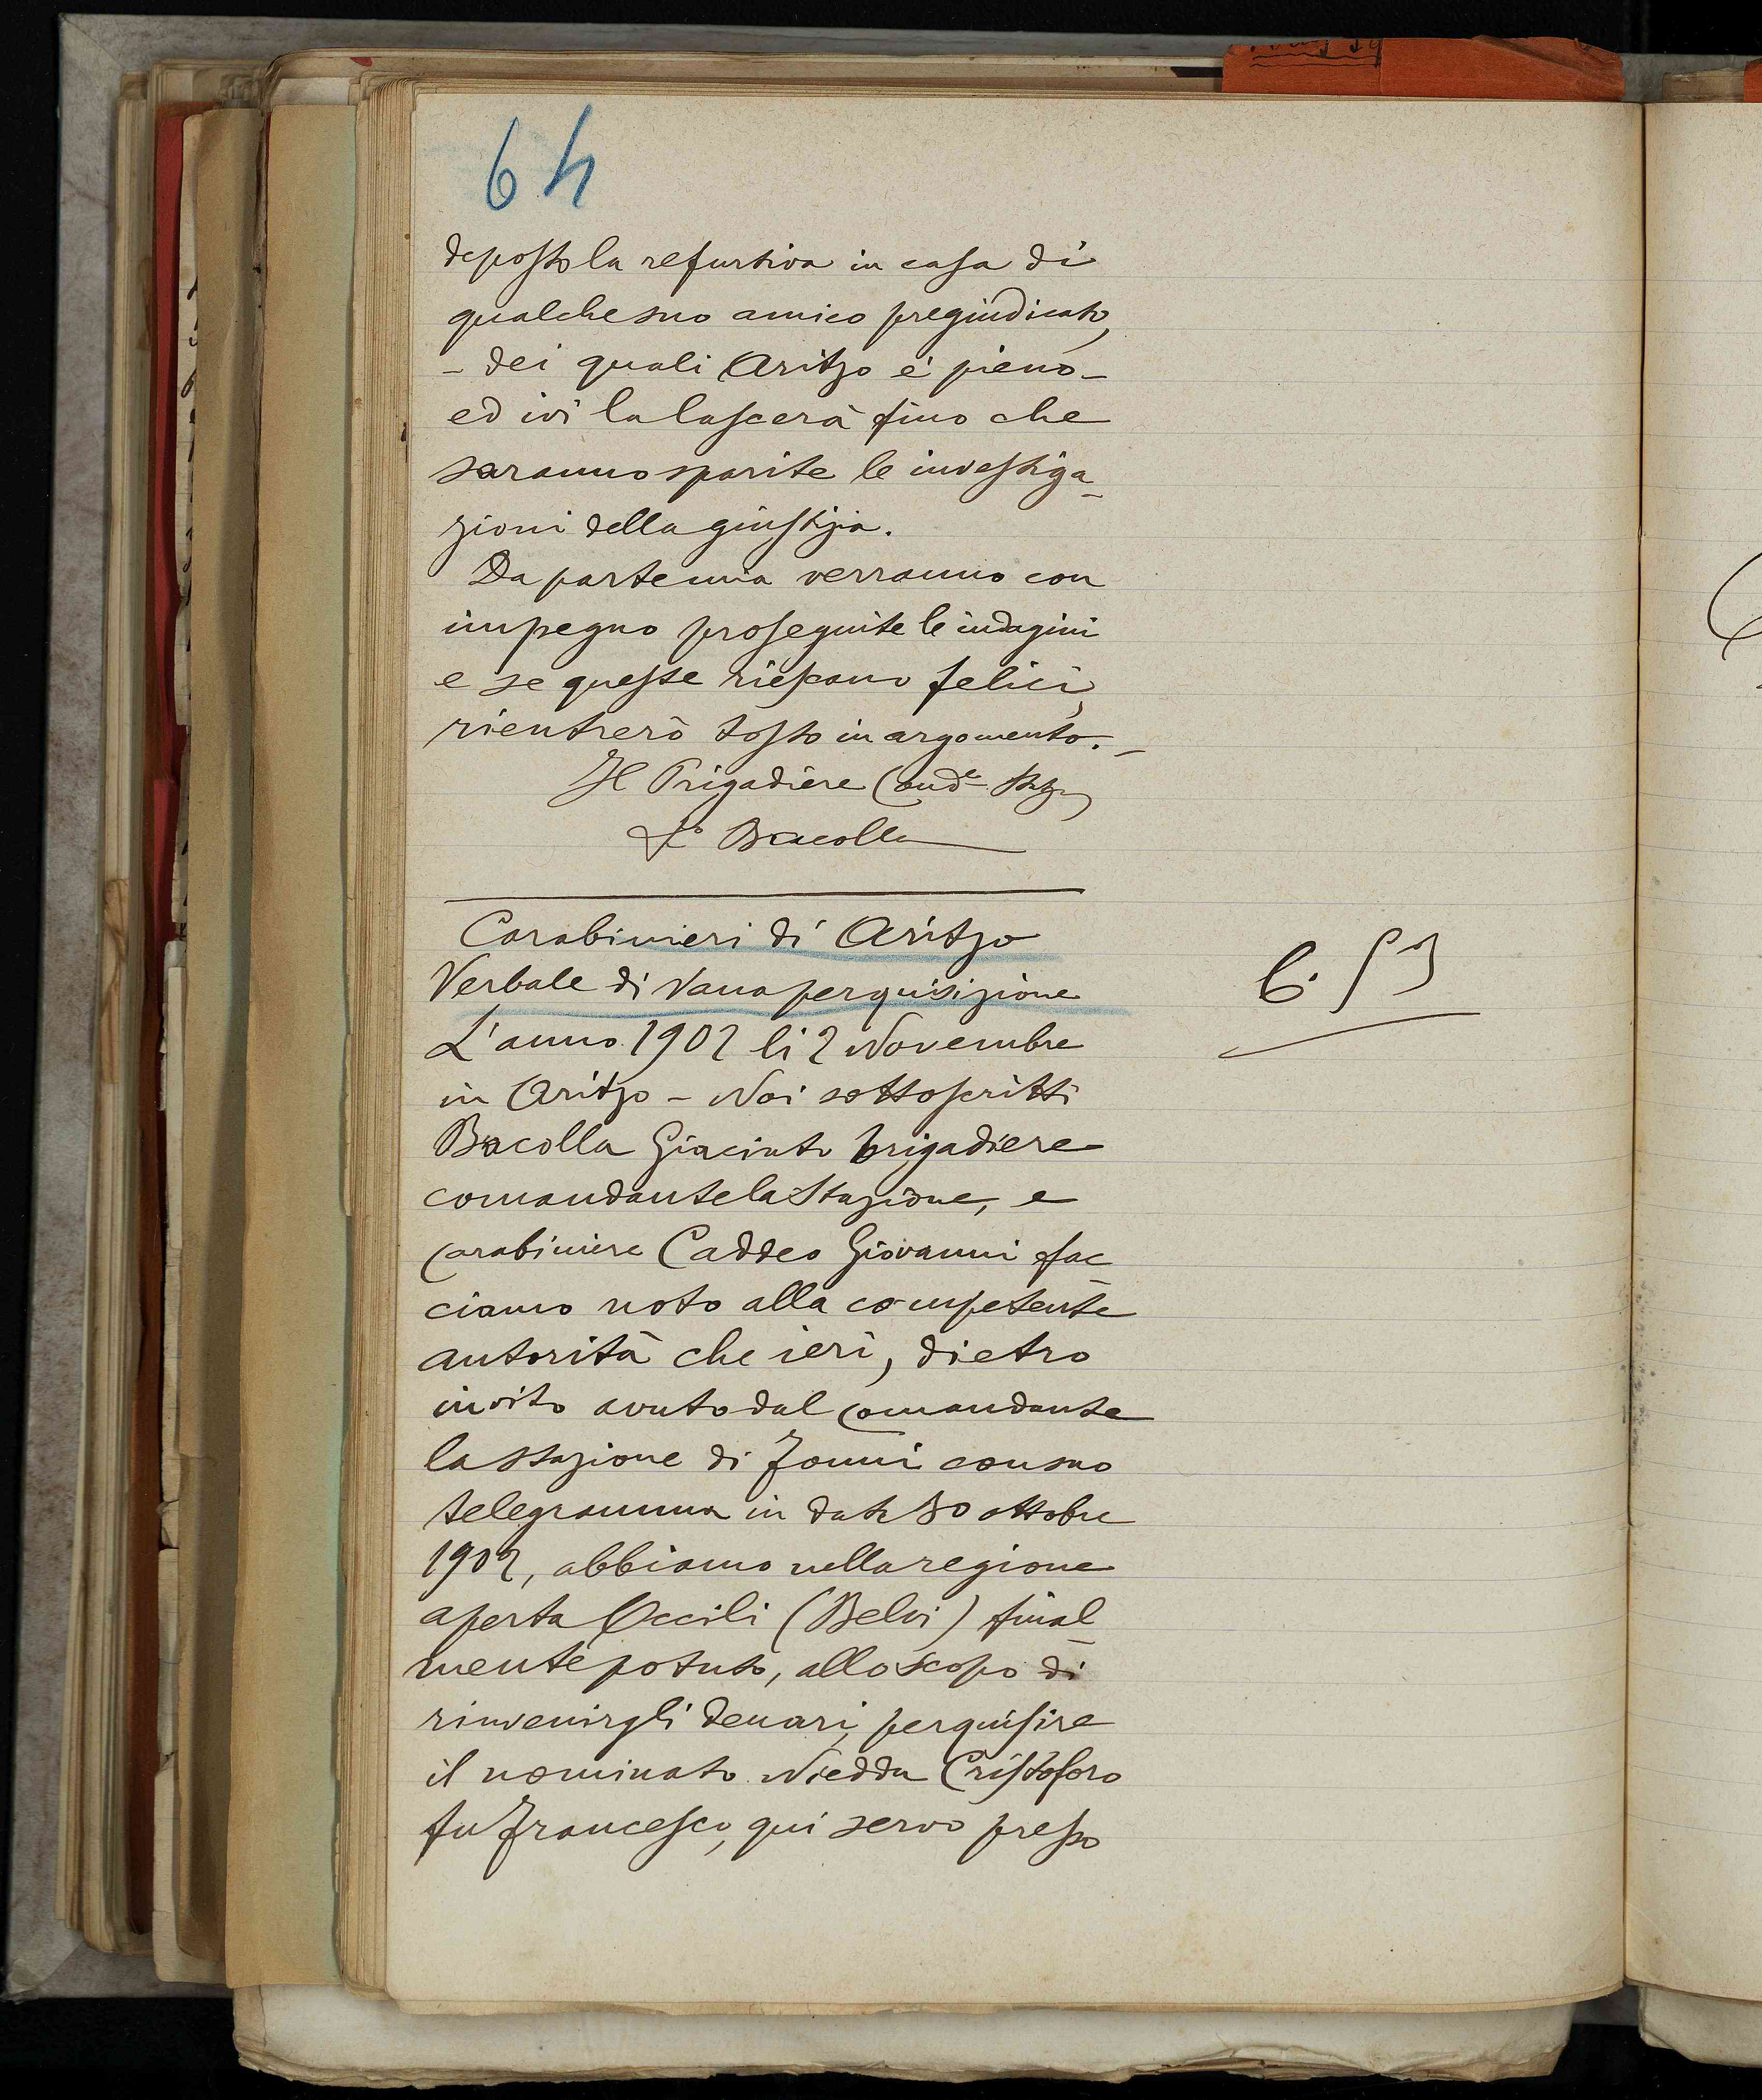 64
deposto la refurtiva in casa di
qualche suo amico pregiudicato,
- dei quali Aritzo è pieno -
ed ivi la lascerà fino che
saranno sparite le investiga_
zioni della giustizia.
Da parte mia verranno con
impegno proseguite le indagini
e se queste riescano felici,
rientrerò tosto in argomento. _
Il Brigadiere Comd.e Staz.
F.o Bacolla
Carabinieri di Aritzo
Verbale di vana perquisizione
6. 53
L'anno 1902 li 2 Novembre
in Aritzo - Noi sottoscritti
Bacolla Giacinto brigadiere
comandante la Stazione, e
Carabiniere Caddeo Giovanni fac_
ciamo noto alla competente
autorità che ieri, dietro
invito avuto dal Comandante
la stazione di Fonni con suo
telegramma in data 30 ottobre
1902, abbiamo nella regione
aperta Occili (Belvi) final_
mente potuto, allo scopo di
rinvenirgli denari, perquisire
il nominato Nieddu Cristoforo
fu Francesco, qui servo presso